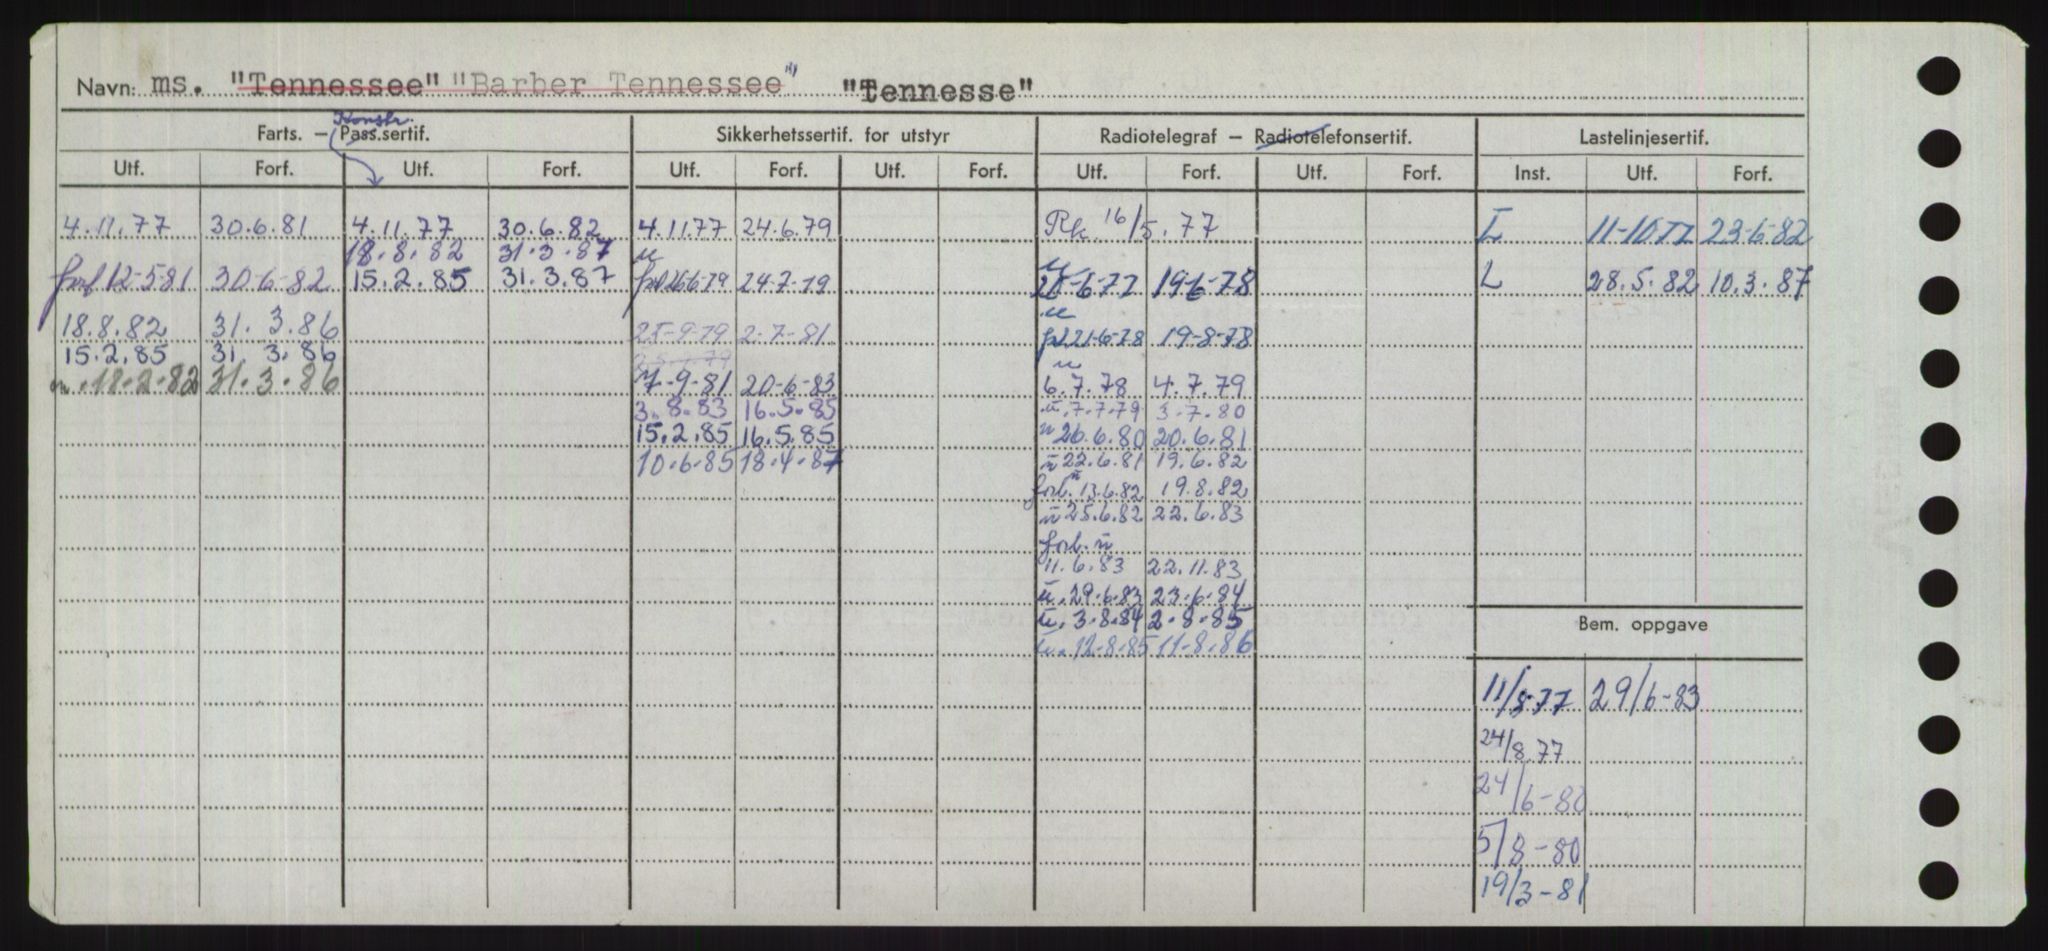 Navn: ms. "Tennessee" "Barber Tennessee" "Tennesse"
Konstr.
Farts. — Pass.sertif. Sikkerhetssertif. for utstyr Radiotelegraf — Radiotelefonsertif. Lastelinjesertif.
Utf. Forf. Utf. Forf. Utf. Forf. Utf. Forf. Utf. Forf. Utf. Forf. Inst. Utf. Forf.
4.11.77 30.6.81 4.11.77 30.6.82 4.11.77 24.6.79 Rk. 16/5.77 I 11-10.77 23-6-82
18.8.82 31.3.87 u
forl 12-5-81 30-6-82 15.2.85 31.3.87 24-7-79 -6-77 19-6-78 L 28.5.82 10.3.87
18.8.82 31.3.86 25-9-79 2-7-81 21-6-78 19-8-78
15.2.85 31.3.86
18-2-82 31.3.86 7-9-81 20-6-83 6.7.78 4.7.79
3.8.83 16.5.85 ū 7.7.79 3.7.80
15.2.85 16.5.85 ū 26.6.80 20.6.81
10.6.85 18.4.87 ū 22.6.81 19.6.82
forl. ū 13.6.82 19.8.82
ū 25.6.82 22.6.83
forl. ū
11.6.83 22.11.83
ū. 29.6.83 23.6.84
ū. 3.8.84 2.8.85
Bem. oppgave
ū. 12-8-85 11-8-86
11/8-77 29/6-83
24/8.77
24/6-80
5/8-80
19/3-81